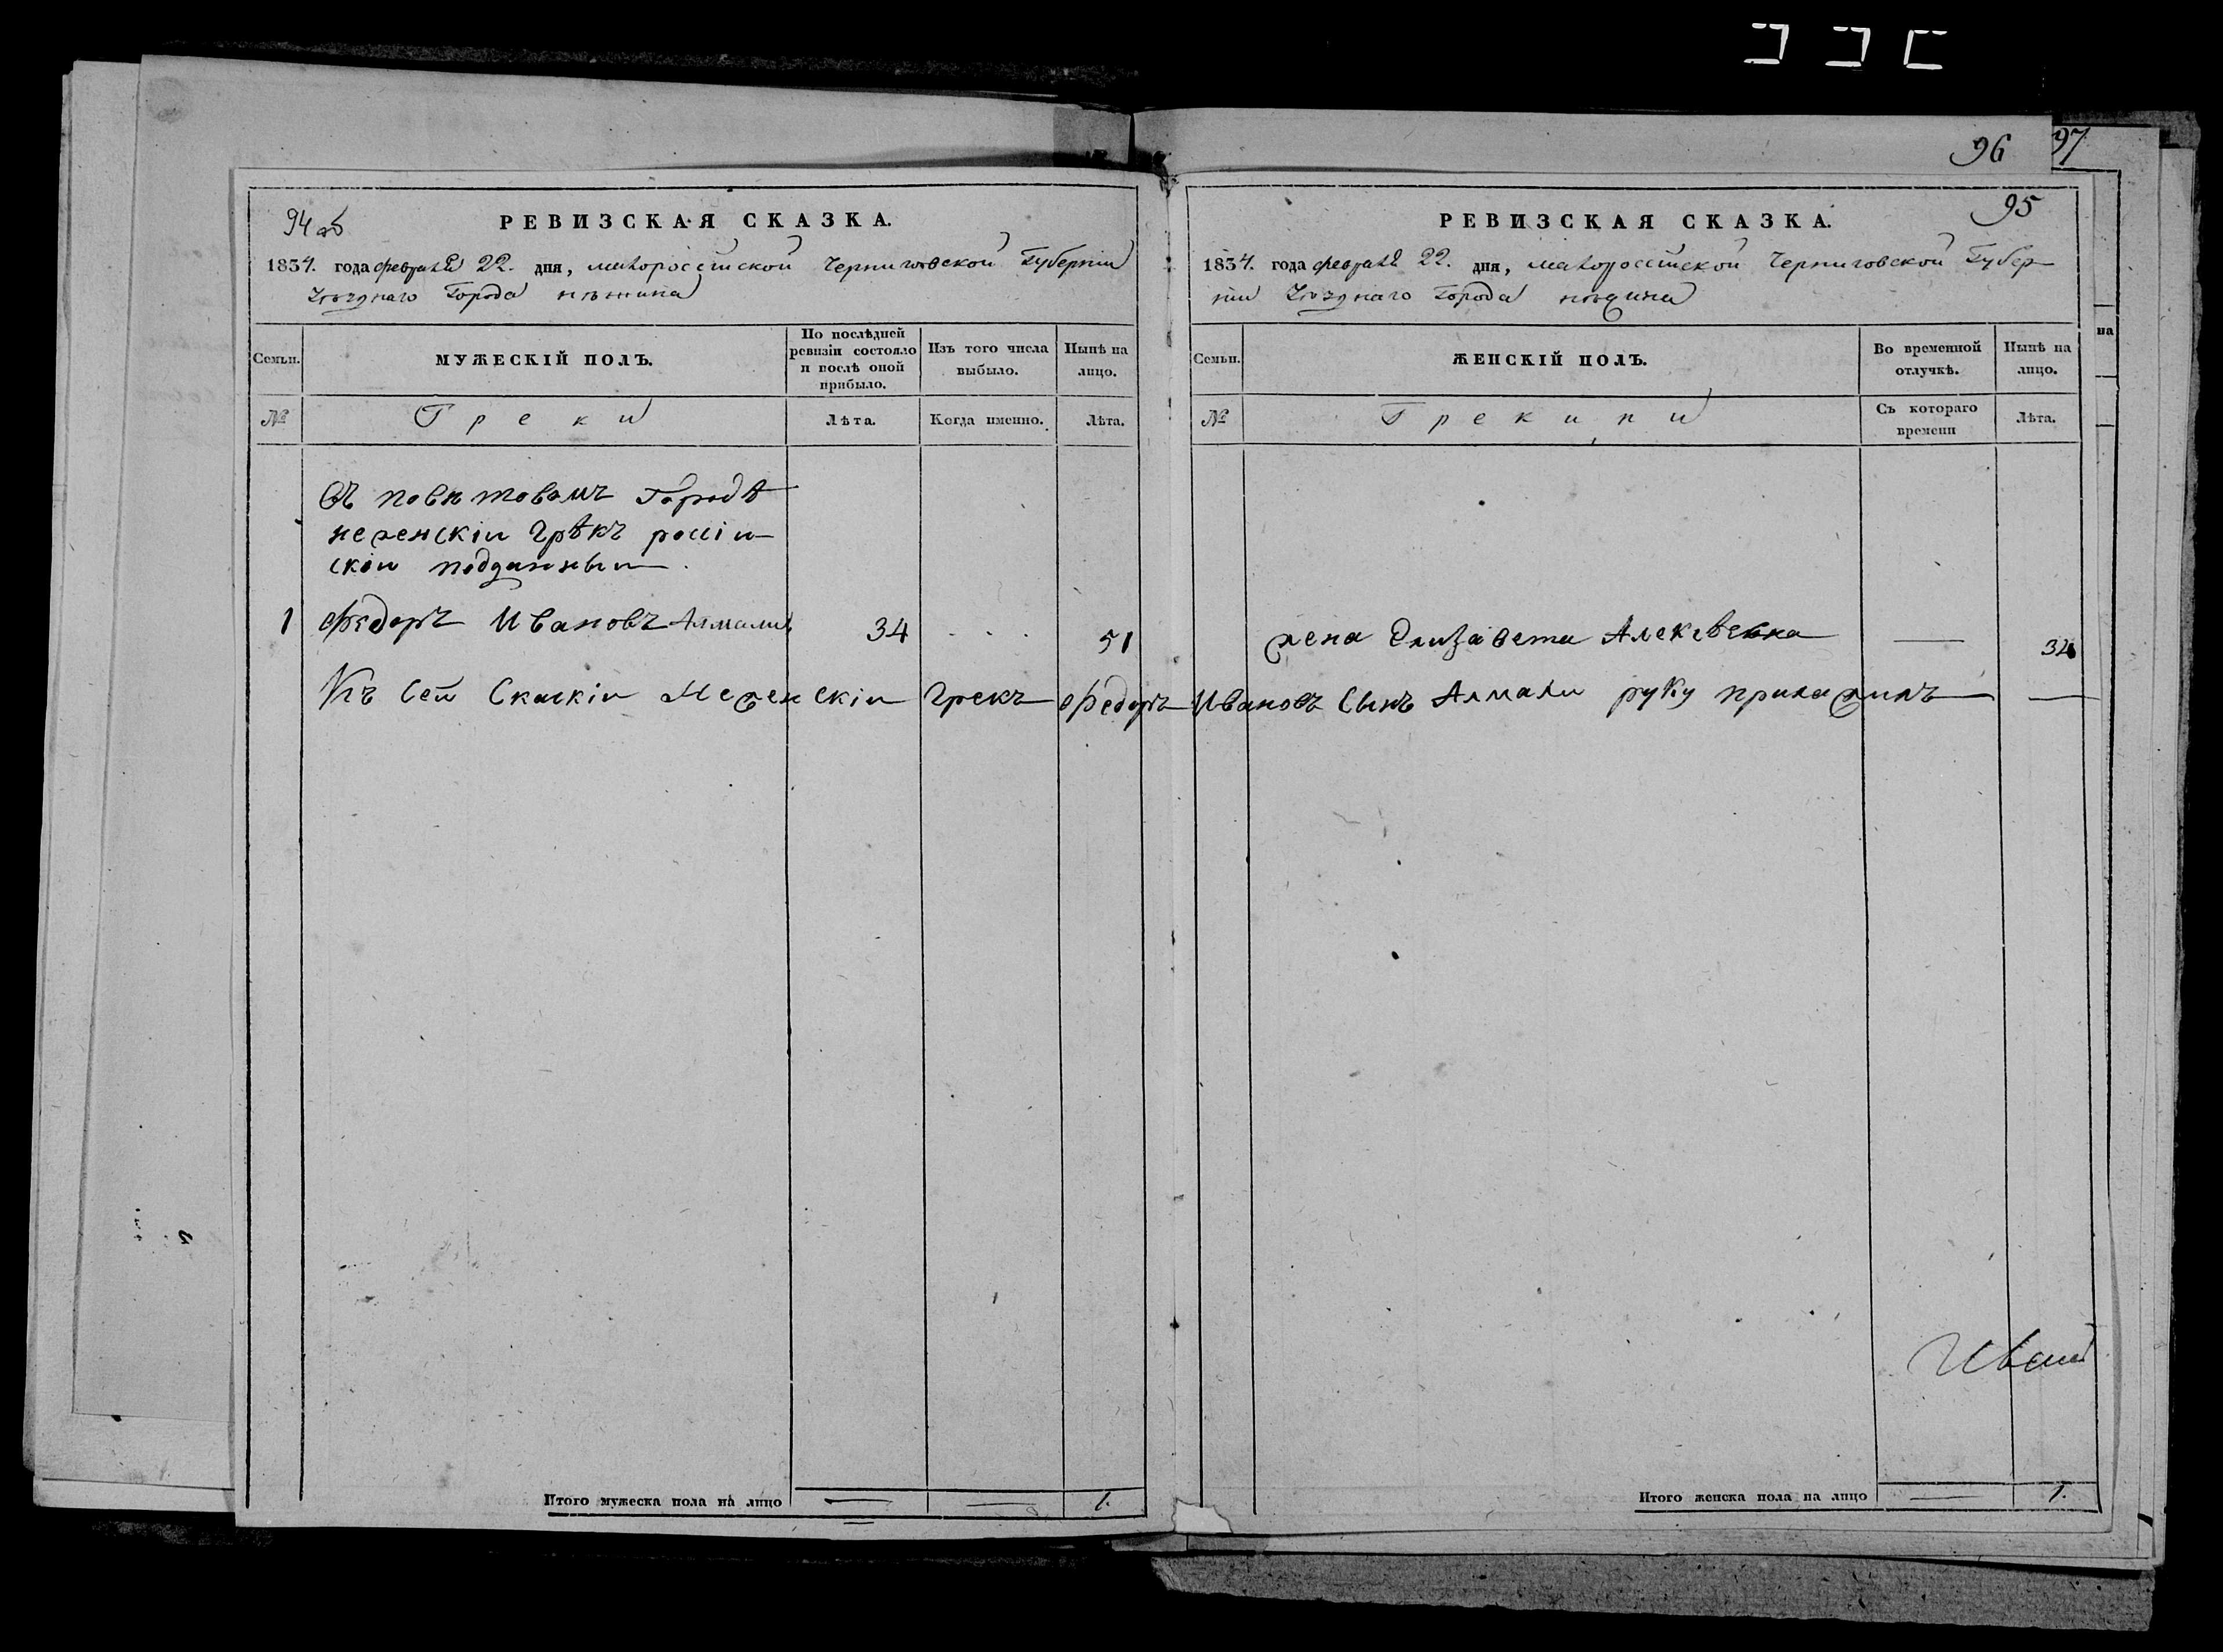 96 97
94 об
РЕВИЗСКАЯ СКАЗКА.
1834. года февраля 22. дня, малороссійской Черниговской Губерніи
Уѣзднаго Города нѣжина
Семьи.
МУЖЕСКІЙ ПОЛЪ.
По послѣдней ревизіи состояло и послѣ оной прибыло.
Изъ того числа выбыло.
Нынѣ на лицо.
№
Греки
Лѣта.
Когда именно.
Лѣта.
Въ повѣтовомъ Городѣ
неженскіи Грѣкъ россіи-
скіи подданныи
1 Федоръ Ивановъ Алмали 34 . . . 51
Къ Сей Скаскіи Неженскіи Грекъ Федоръ Ивановъ Сынъ Алмали руку приложилъ
Итого мужеска пола на лицо — — 1.
95
РЕВИЗСКАЯ СКАЗКА.
1834. года февраля 22. дня, малороссійской Черниговской Губер-
ніи Уѣзднаго Города нѣжина
Семьи.
ЖЕНСКІЙ ПОЛЪ.
Во временной отлучкѣ.
Нынѣ на лицо.
№
Грекини
Съ котораго времени
Лѣта.
жена Елизавета Алексѣевна —
Итого женска пола на лицо — 1.
на